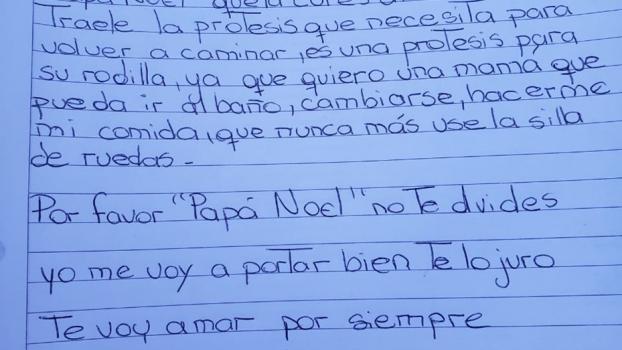 Traele la prótesis que necesita para
volver a caminar, es una protesis para
su rodilla, ya que quiero una mamá que
pueda ir al baño, cambiarse, hacerme
mi comida, que nunca más use la silla
de ruedas.
Por favor "Papá Noel" no te dvides
yo me voy a portar bien te lo juro
Te voy amar por siempre